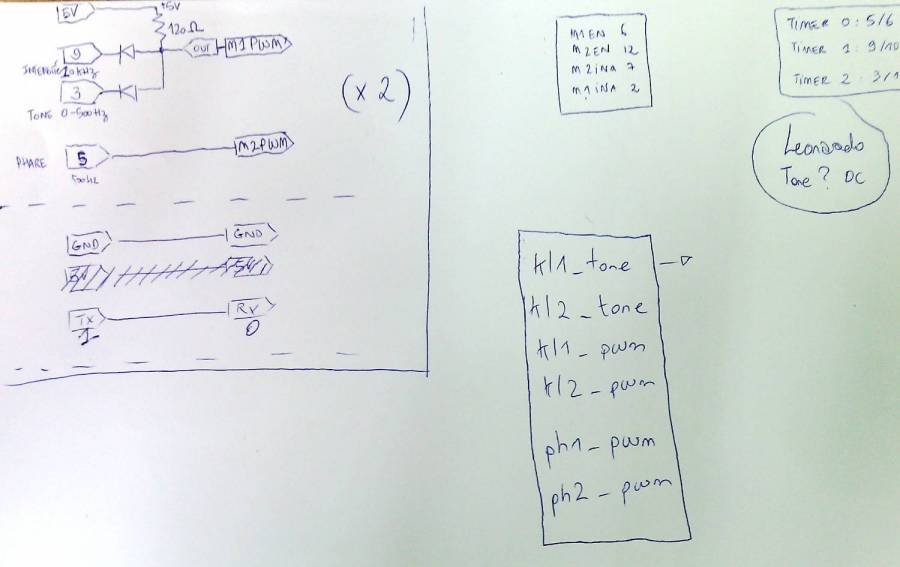 5V
+5V
120Ω
9
OUT
M1PWM
20kHz
3
TONE 0-500Hz
(x2)
PHARE
5
M2PWM
500Hz
GND
GND
TX
RX
1
0
M1EN 6
M2EN 12
M2INA 7
M1INA 2
TIMER 0: 5/6
TIMER 1: 9/10
TIMER 2: 3/1
Leonardo
Tone? DC
kl1_tone
kl2_tone
kl1_pwm
kl2_pwm
ph1_pwm
ph2_pwm